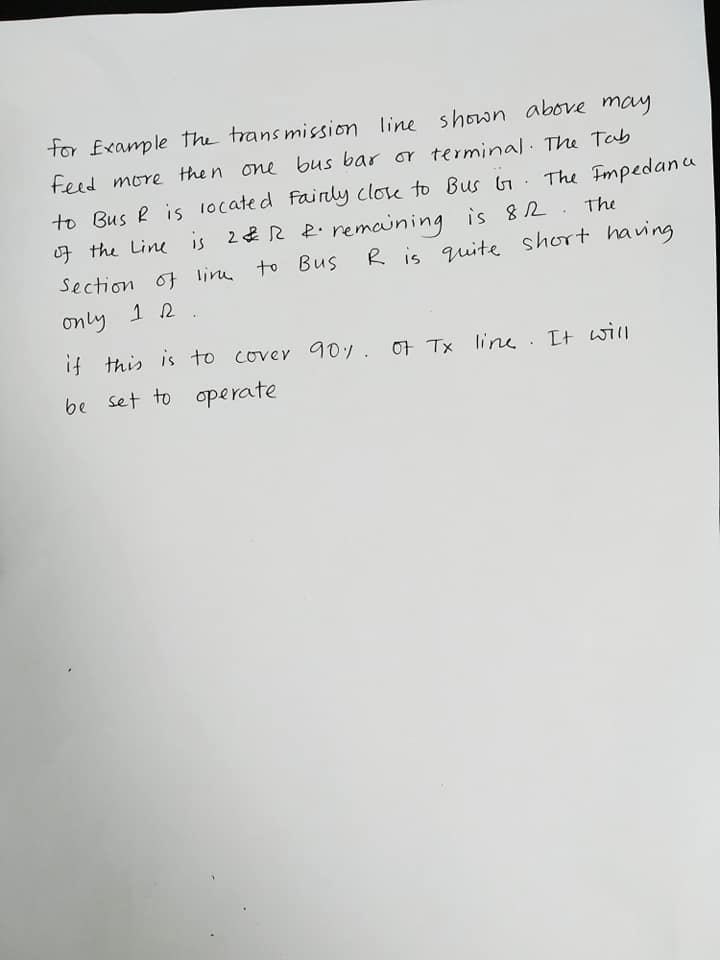 for Example the transmission line shown above may
feed more then one bus bar or terminal. The Tab
to Bus R is located Fairly close to Bus G. The Impedance
of the Line is 2 Ω & remaining is 8Ω. The
Section of line to Bus R is quite short having
only 1 Ω.
if this is to cover 90%. Of Tx line. It will
be set to operate